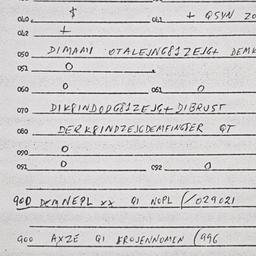 040. $ 041 + QSYN ZO
042 +
050 DIMAMI OTALEJNG81ZEJG+ DEMK
051 O
060 O 061 O
070 DIKRINDODG81ZEJG+DIBRUST
080 DERKRINDZEJGDEMFINGTER QT
090 O
091 O 092 O
900 DEMNEPL xx QI NOPL (/029021
900 AXZE QI KROJENNOMEN (996